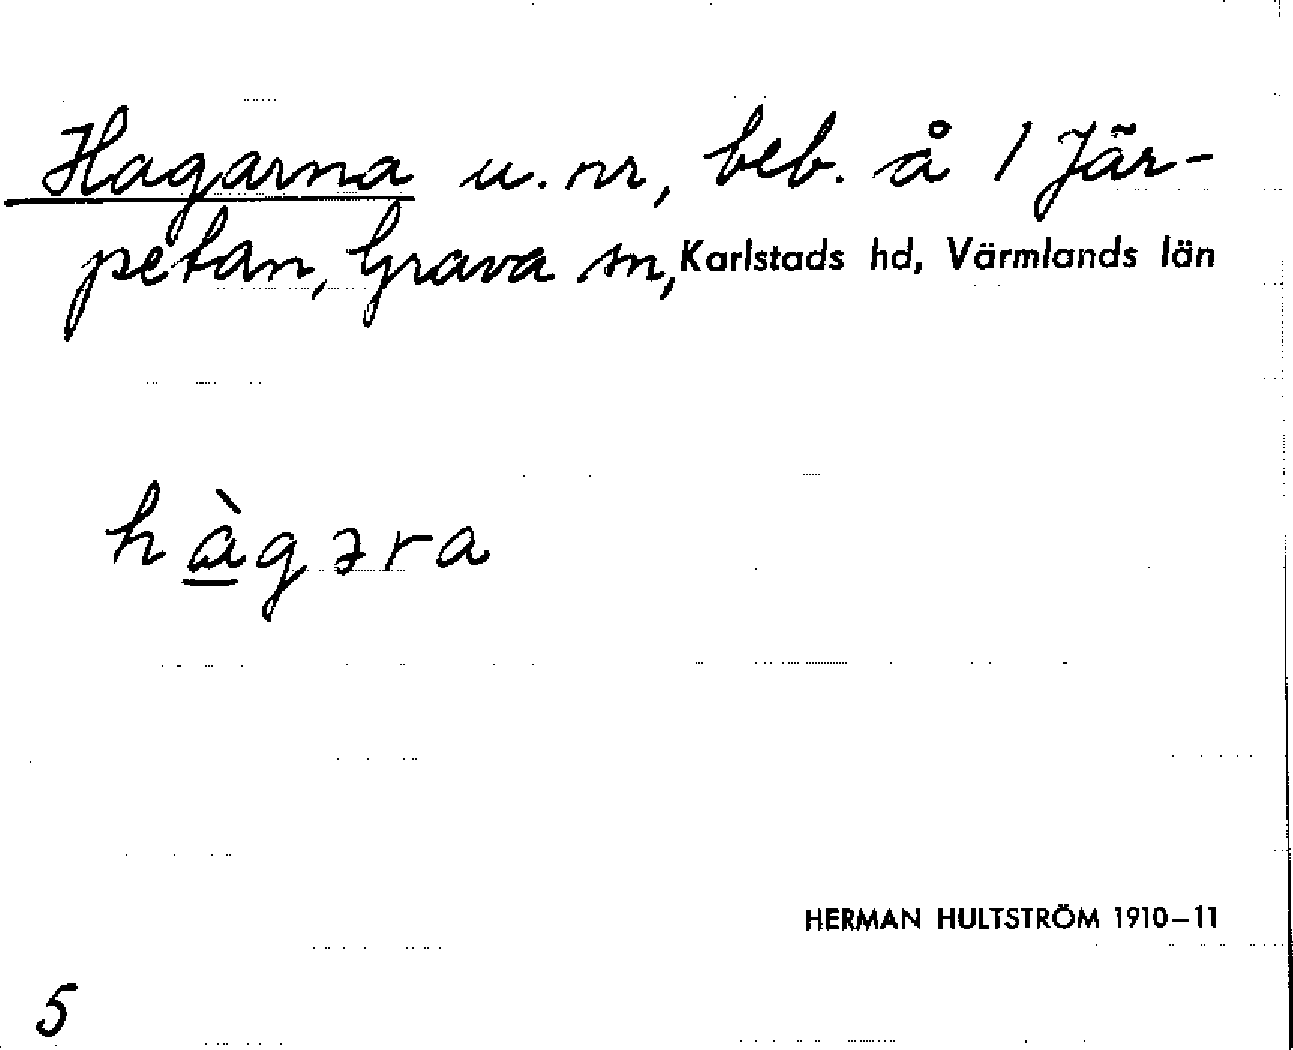 Hagarna u. nr, beb. å 1 Jär-
petan, Grava sn, Karlstads hd, Värmlands län
hà̲gəra
HERMAN HULTSTRÖM 1910–11
5